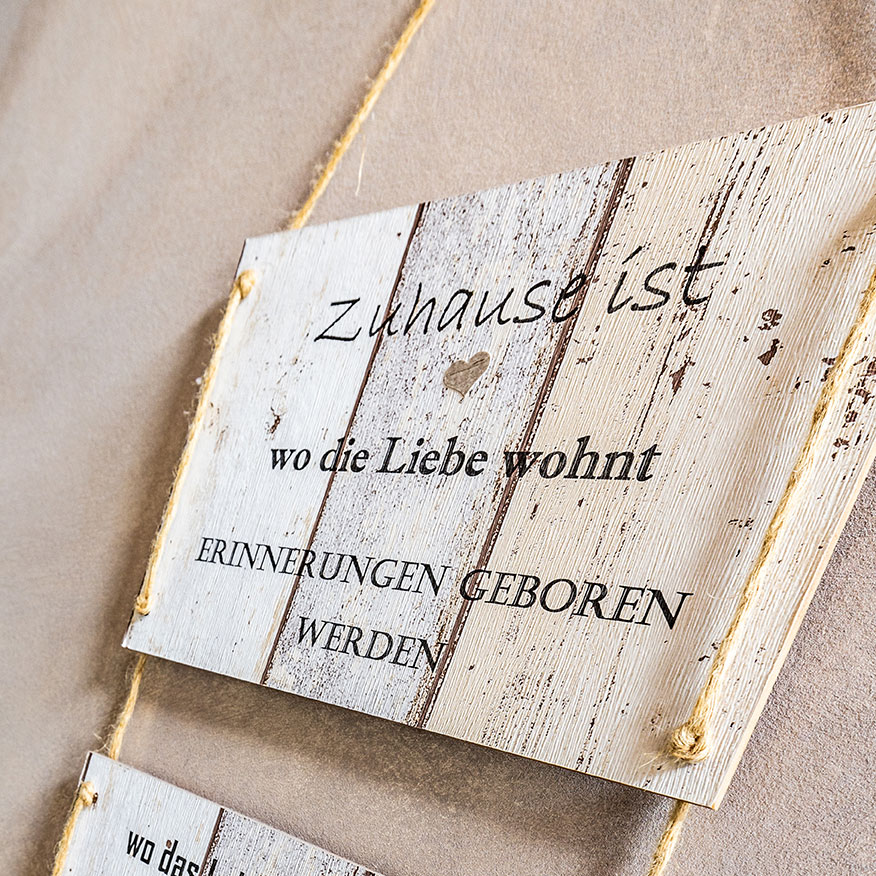 Zuhause ist
wo die Liebe wohnt
ERINNERUNGEN GEBOREN
WERDEN
wo das